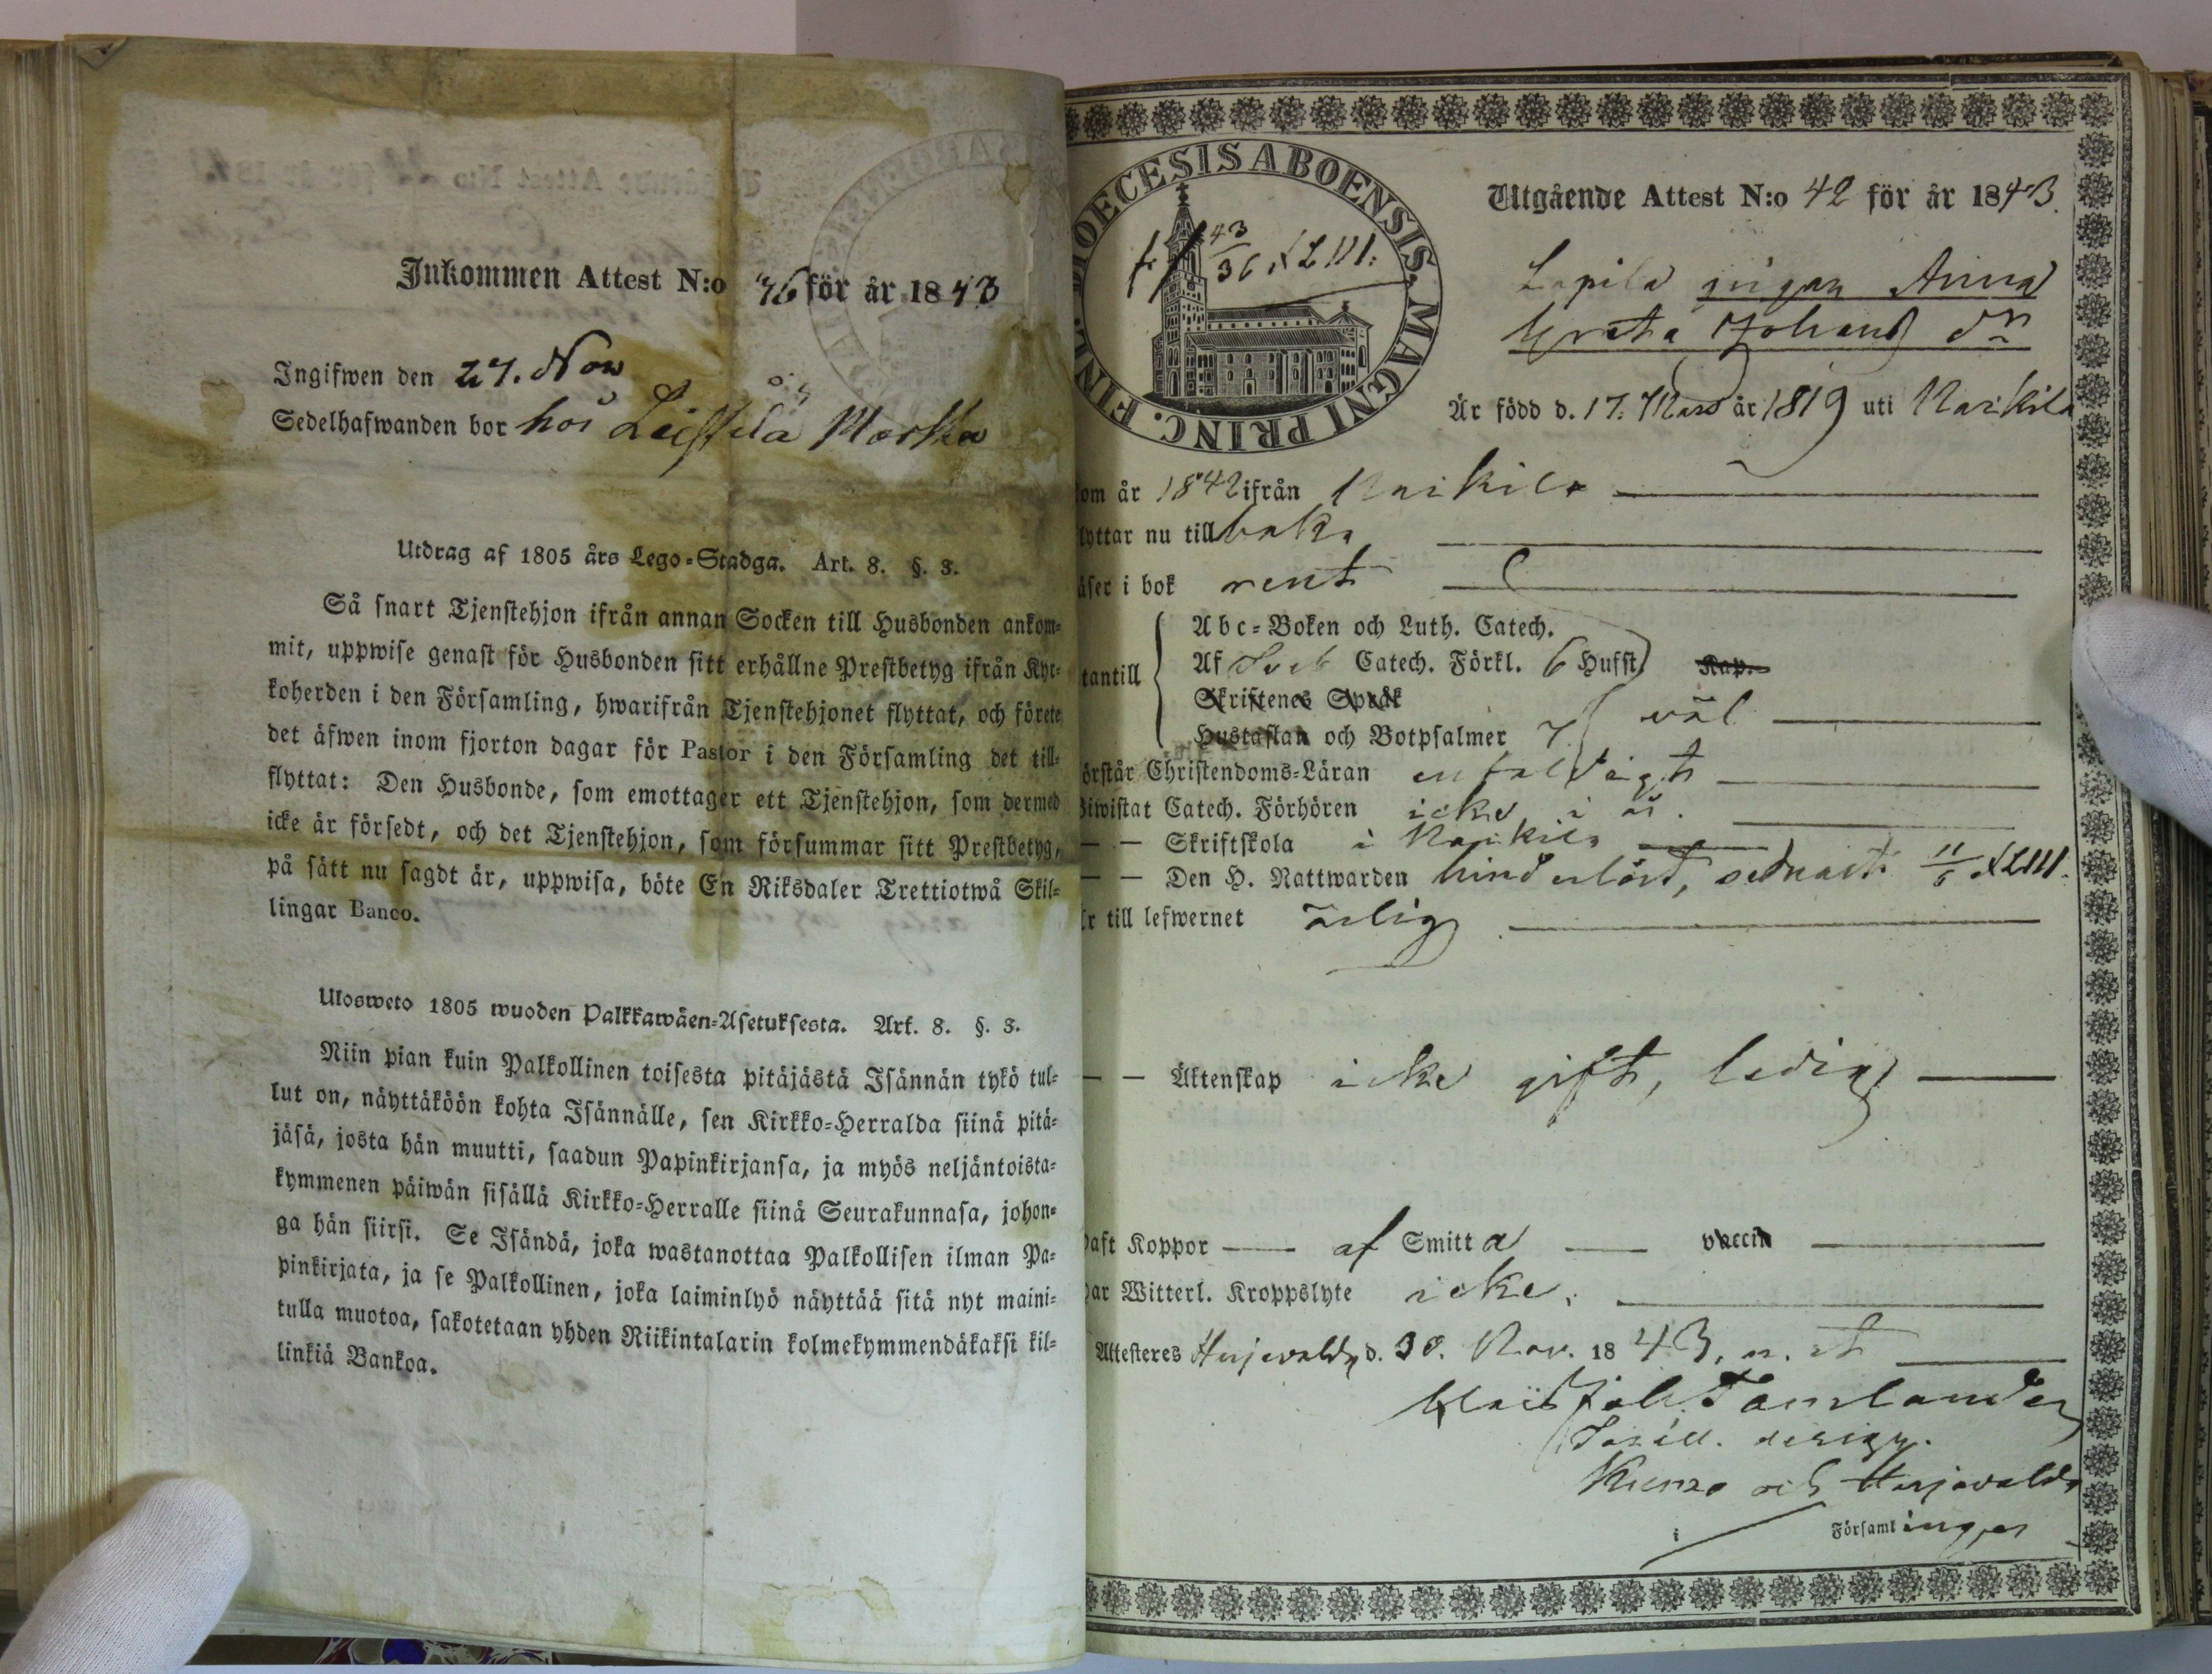 Inkommen Attest N:o 46 för år 1843
Ingifwen den 27. Nov
Sedelhafwanden bor hos Leistilä
Utdrag af 1805 års Lego-Stadga. Art. 8. §. 3.
Så snart Tjenstehjon ifrån annan Socken till Husbonden ankom-
mit, uppwise genast för Husbonden sitt erhållne Prestbetyg ifrån Kyr-
koherden i den Församling, hwarifrån Tjenstehjonet flyttat, och förete
det äfwen inom fjorton dagar för Pastor i den Församling det till-
flyttat: Den Husbonde, som emottager ett Tjenstehjon, som dermed
icke är försedt, och det Tjenstehjon, som försummar sitt Prestbetyg,
på sätt nu sagdt är, uppwisa, böte En Riksdaler Trettiotwå Skil-
lingar Banco.
Ulosweto 1805 wuoden Palkkawäen-Asetuksesta. Art. 8. §. 3.
Niin pian kuin Palkollinen toisesta pitäjästä Isännän tykö tul-
lut on, näyttäköön kohta Isännälle, sen Kirkko-Herralda siinä pitä-
jäsä, josta hän muutti, saadun Papinkirjansa, ja myös neljäntoista-
kymmenen päiwän sisällä Kirkko-Herralle siinä Seurakunnasa, johon-
ga hän siirsi. Se Isändä, joka wastanottaa Palkollisen ilman Pa-
pinkirjata, ja se Palkollinen, joka laiminlyö näyttää sitä nyt maini-
tulla muotoa, sakotetaan yhden Riikintalarin kolmekymmendäkaksi kil-
linkiä Bankoa.
DIOECESIS ABOENSIS. MAGNI PRINC. FINL.
43
36 XLIII.
Utgående Attest N:o 42 för år 1843.
pigan Anna
Greta Johansdr
Är född d. 17. Mars år 1819 uti Naskila
om år 1842 ifrån
lyttar nu tillbaka
äser i bok rent
tantill
Abc-Boken och Luth. Catech.
Af Catech. Förkl. 6 Hufst. Kap.
Skriftenes Språk
Hustaflan och Botpsalmer 7 väl
örstår Christendoms-Läran enfaldigt
iwistat Catech. Förhören icke i år.
— — Skriftskola i
— — Den H. Nattwarden hinderlöst, sednast 11/6 XLIII.
r till lefwernet ärlig
— — Äktenskap icke gift, ledig
aft Koppor — af Smitta — vaccin
ar Witterl. Kroppslyte icke.
Attesteres Harjavalda d. 30. Nov. 1843,
Tamlander
Harjavalda
i Församlingar